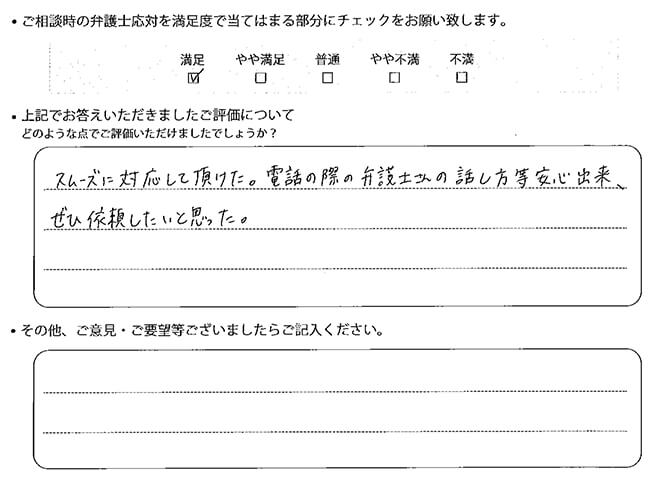 • ご相談時の弁護士応対を満足度で当てはまる部分にチェックをお願い致します。
満足 やや満足 普通 やや不満 不満
☑ □ □ □ □
• 上記でお答えいただきましたご評価について
どのような点でご評価いただけましたでしょうか?
スムーズに対応して頂けた。電話の際の弁護士さんの話し方等安心出来、
ぜひ依頼したいと思った。
• その他、ご意見・ご要望等ございましたらご記入ください。